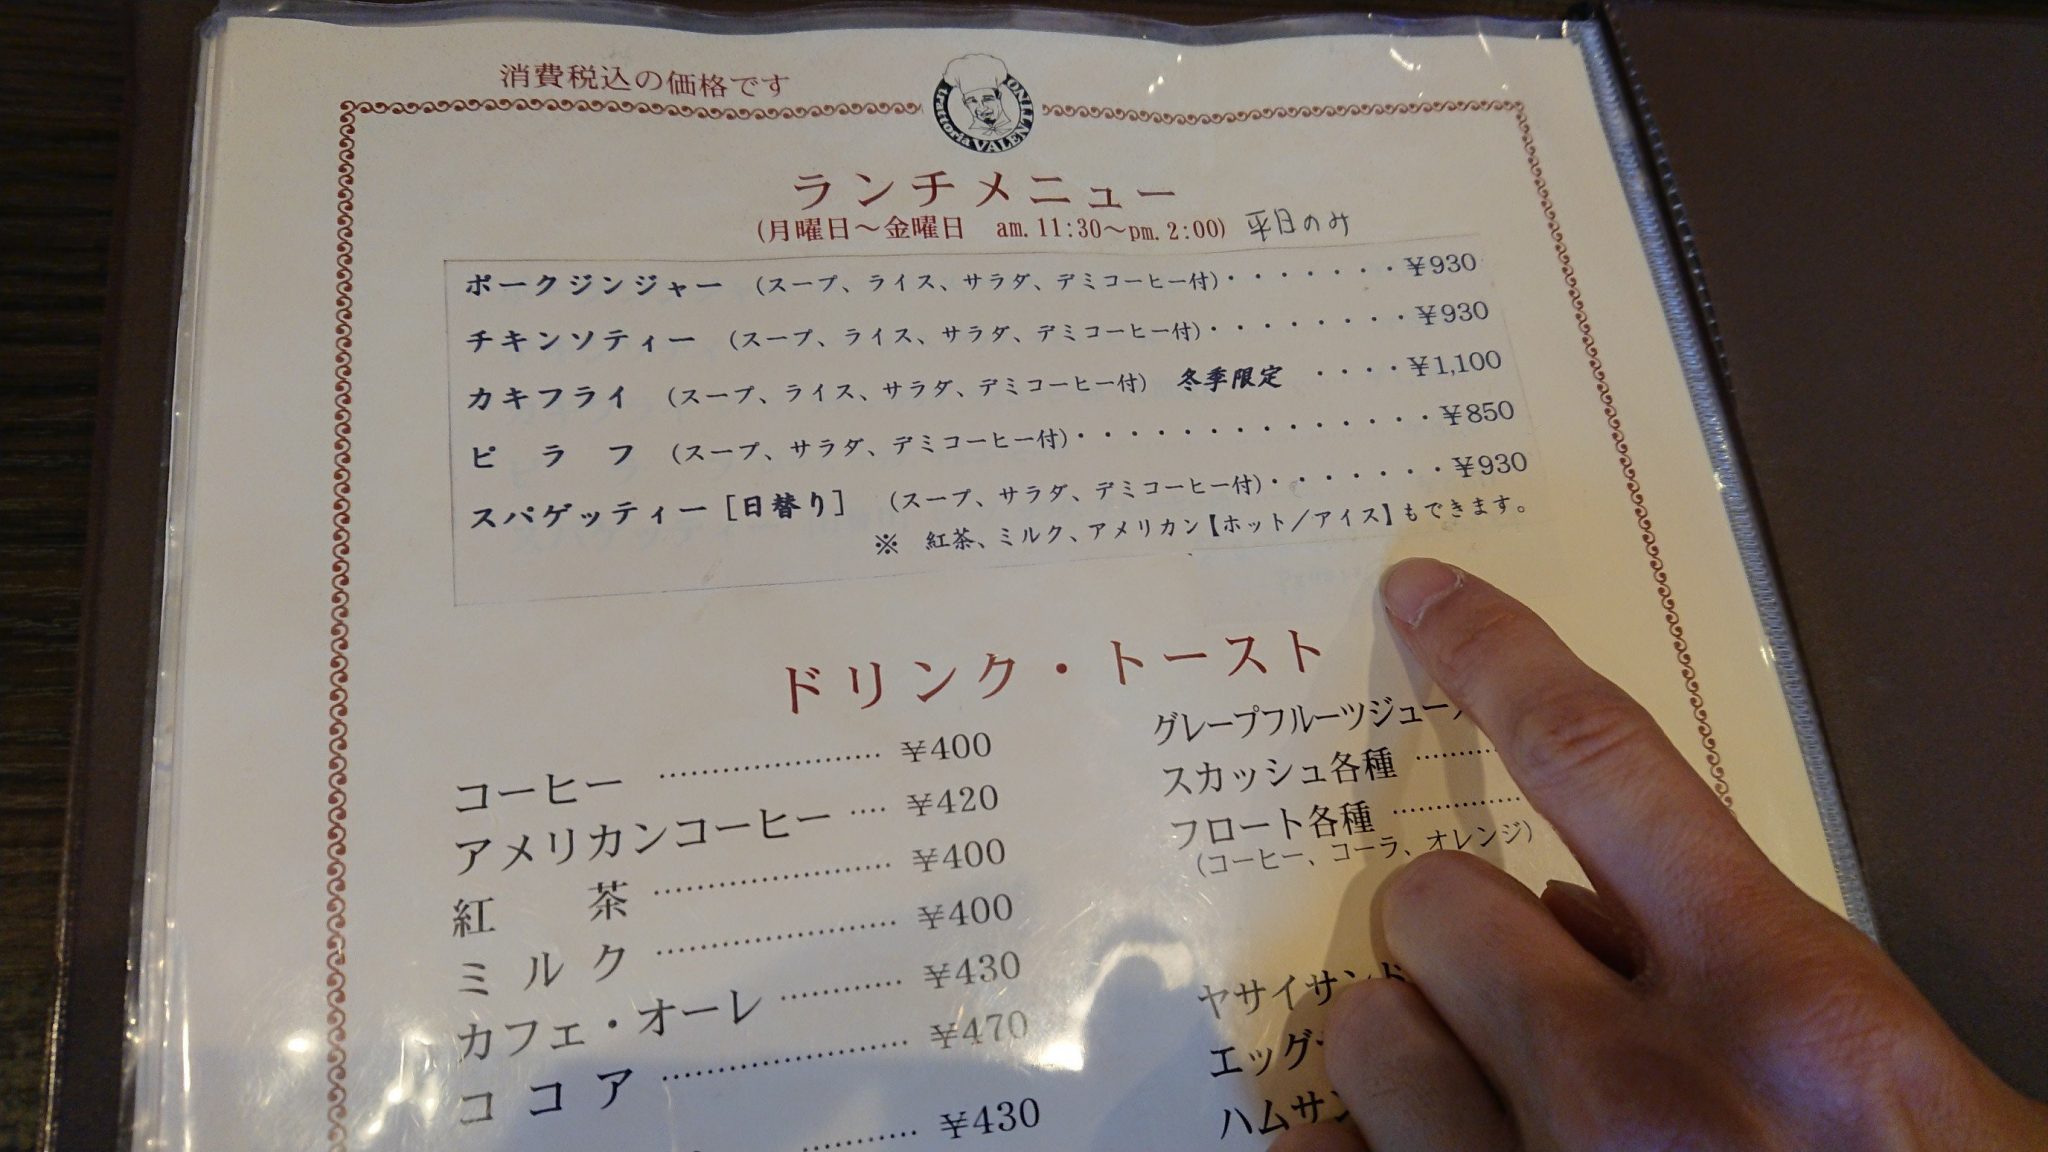 消費税込の価格です
trattoria VALENTINO
ランチメニュー
(月曜日～金曜日 am.11:30～pm.2:00) 平日のみ
ポークジンジャー (スープ、ライス、サラダ、デミコーヒー付)・・・・・・・¥930
チキンソティー (スープ、ライス、サラダ、デミコーヒー付)・・・・・・・・¥930
カキフライ (スープ、ライス、サラダ、デミコーヒー付) 冬季限定 ・・・・¥1,100
ピラフ (スープ、サラダ、デミコーヒー付)・・・・・・・・・・・・・・¥850
スパゲッティー[日替り] (スープ、サラダ、デミコーヒー付)・・・・・・・¥930
※ 紅茶、ミルク、アメリカン【ホット／アイス】もできます。
ドリンク・トースト
コーヒー ………………… ¥400
アメリカンコーヒー … ¥420
紅茶 ………………… ¥400
ミルク ………………… ¥400
カフェ・オーレ ………… ¥430
ココア ………………… ¥470
………… ¥430
グレープフルーツジュー
スカッシュ各種 ………
フロート各種 …………
(コーヒー、コーラ、オレンジ)
ヤサイサンド
エッグ
ハムサン